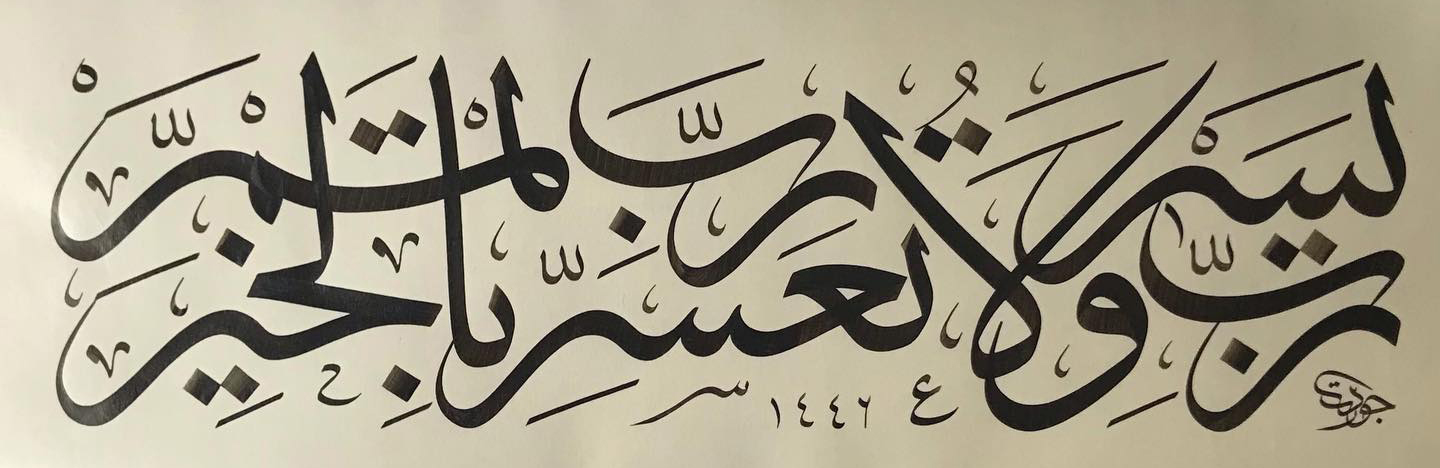 رَبِّ يَسِّرْ وَلَا تُعَسِّرْ رَبِّ تَمِّمْ بِالْخَيْرِ
١٤٤٦
جودت